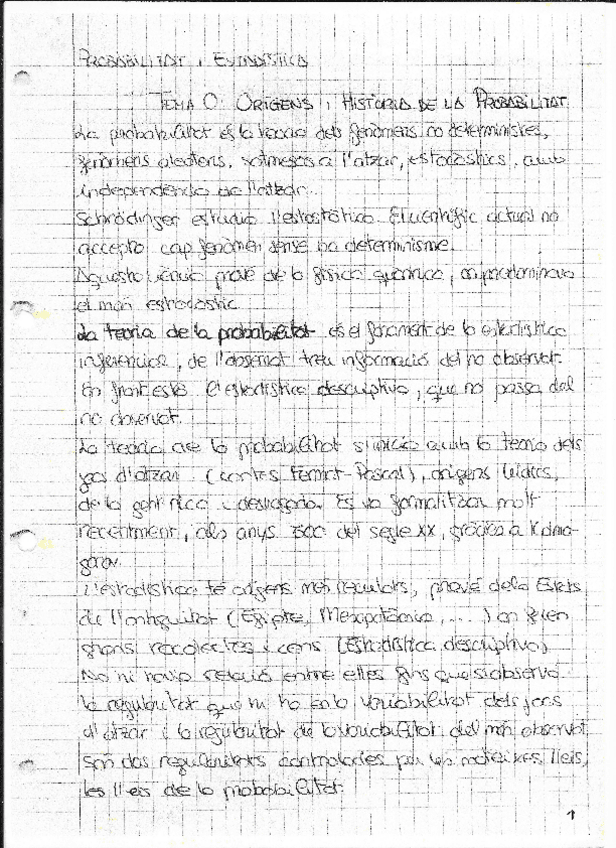 PROBABILITAT i ESTADÍSTICA
TEMA 0: ORÍGENS i HISTÒRIA DE LA PROBABILITAT.
La probabilitat és la teoria dels fenòmens no deterministes,
fenòmens aleatoris, sotmesos a l'atzar, estocàstics, amb
independència de l'atzar.
Schrödinger estudia l'estocàstica. El científic actual no
accepta cap fenomen sense ha determinisme.
Aquesta prové de la física quàntica, on predominava
el món estocàstic.
La teoria de la probabilitat és el fonament de la estadística
inferencial, de l'observat treu informació del no observat.
En front està l'estadística descriptiva, que no passa del
no observat.
La teoria de la probabilitat s'inicia amb la teoria dels
jocs d'atzar (cartes Fermat-Pascal), orígens lúdics,
de la gent rica i desvagada. Es va formalitzar molt
recentment, als anys del segle XX, gràcies a Kolmo-
gorov.
L'estadística té orígens més reculats, prové dels Estats
de l'antiguitat (Egipte, Mesopotàmia, ...) on feien
grans recol·lectes i cens (Estadística descriptiva)
No hi havia relació entre elles fins que s'observa
la regularitat que hi ha en la variabilitat dels jocs
d'atzar i la regularitat de la variabilitat del món observat
Són dos regularitats controlades per les mateixes lleis,
les lleis de la probabilitat.
1